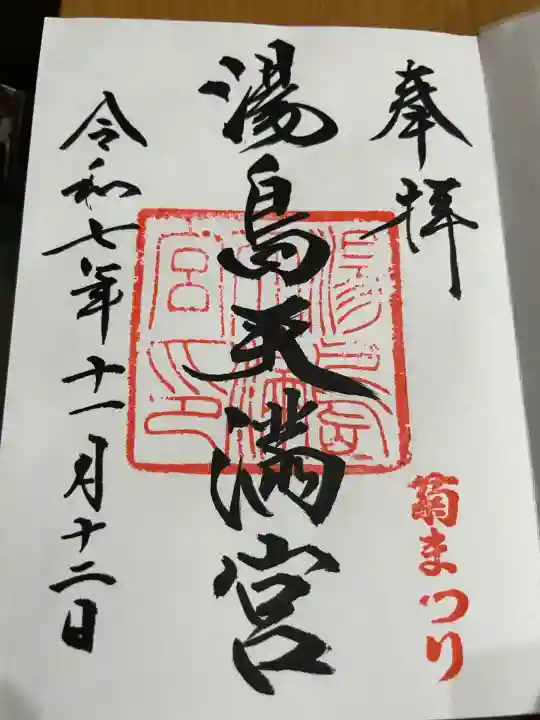 奉拝
菊まつり
湯島天満宮
湯島天満宮印
令和七年十一月十二日